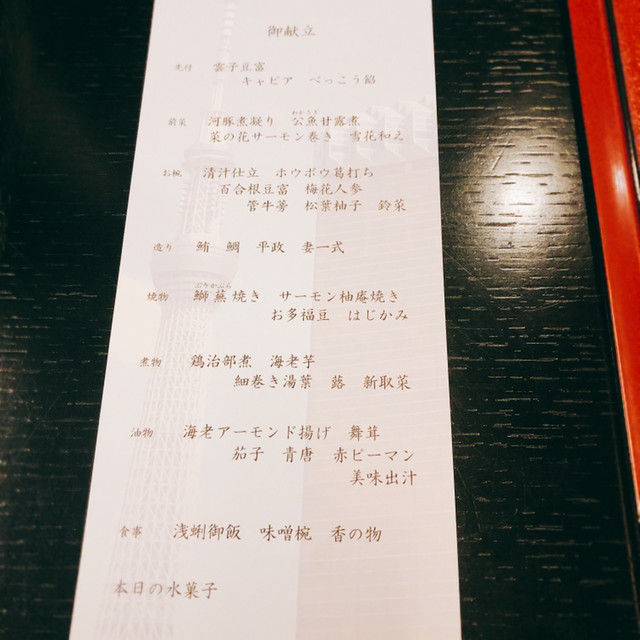 御献立
先付 雲子豆富
キャビア べっこう餡
前菜 河豚煮凝り 公魚甘露煮
わかさぎ
菜の花サーモン巻き 雪花和え
お椀 清汁仕立 ホウボウ葛打ち
百合根豆富 梅花人参
管牛蒡 松葉柚子 鈴菜
造り 鮪 鯛 平政 妻一式
ぶりかぶら
焼物 鰤蕪焼き サーモン柚庵焼き
お多福豆 はじかみ
煮物 鶏治部煮 海老芋
細巻き湯葉 蕗 新取菜
油物 海老アーモンド揚げ 舞茸
茄子 青唐 赤ピーマン
美味出汁
食事 浅蜊御飯 味噌椀 香の物
本日の水菓子